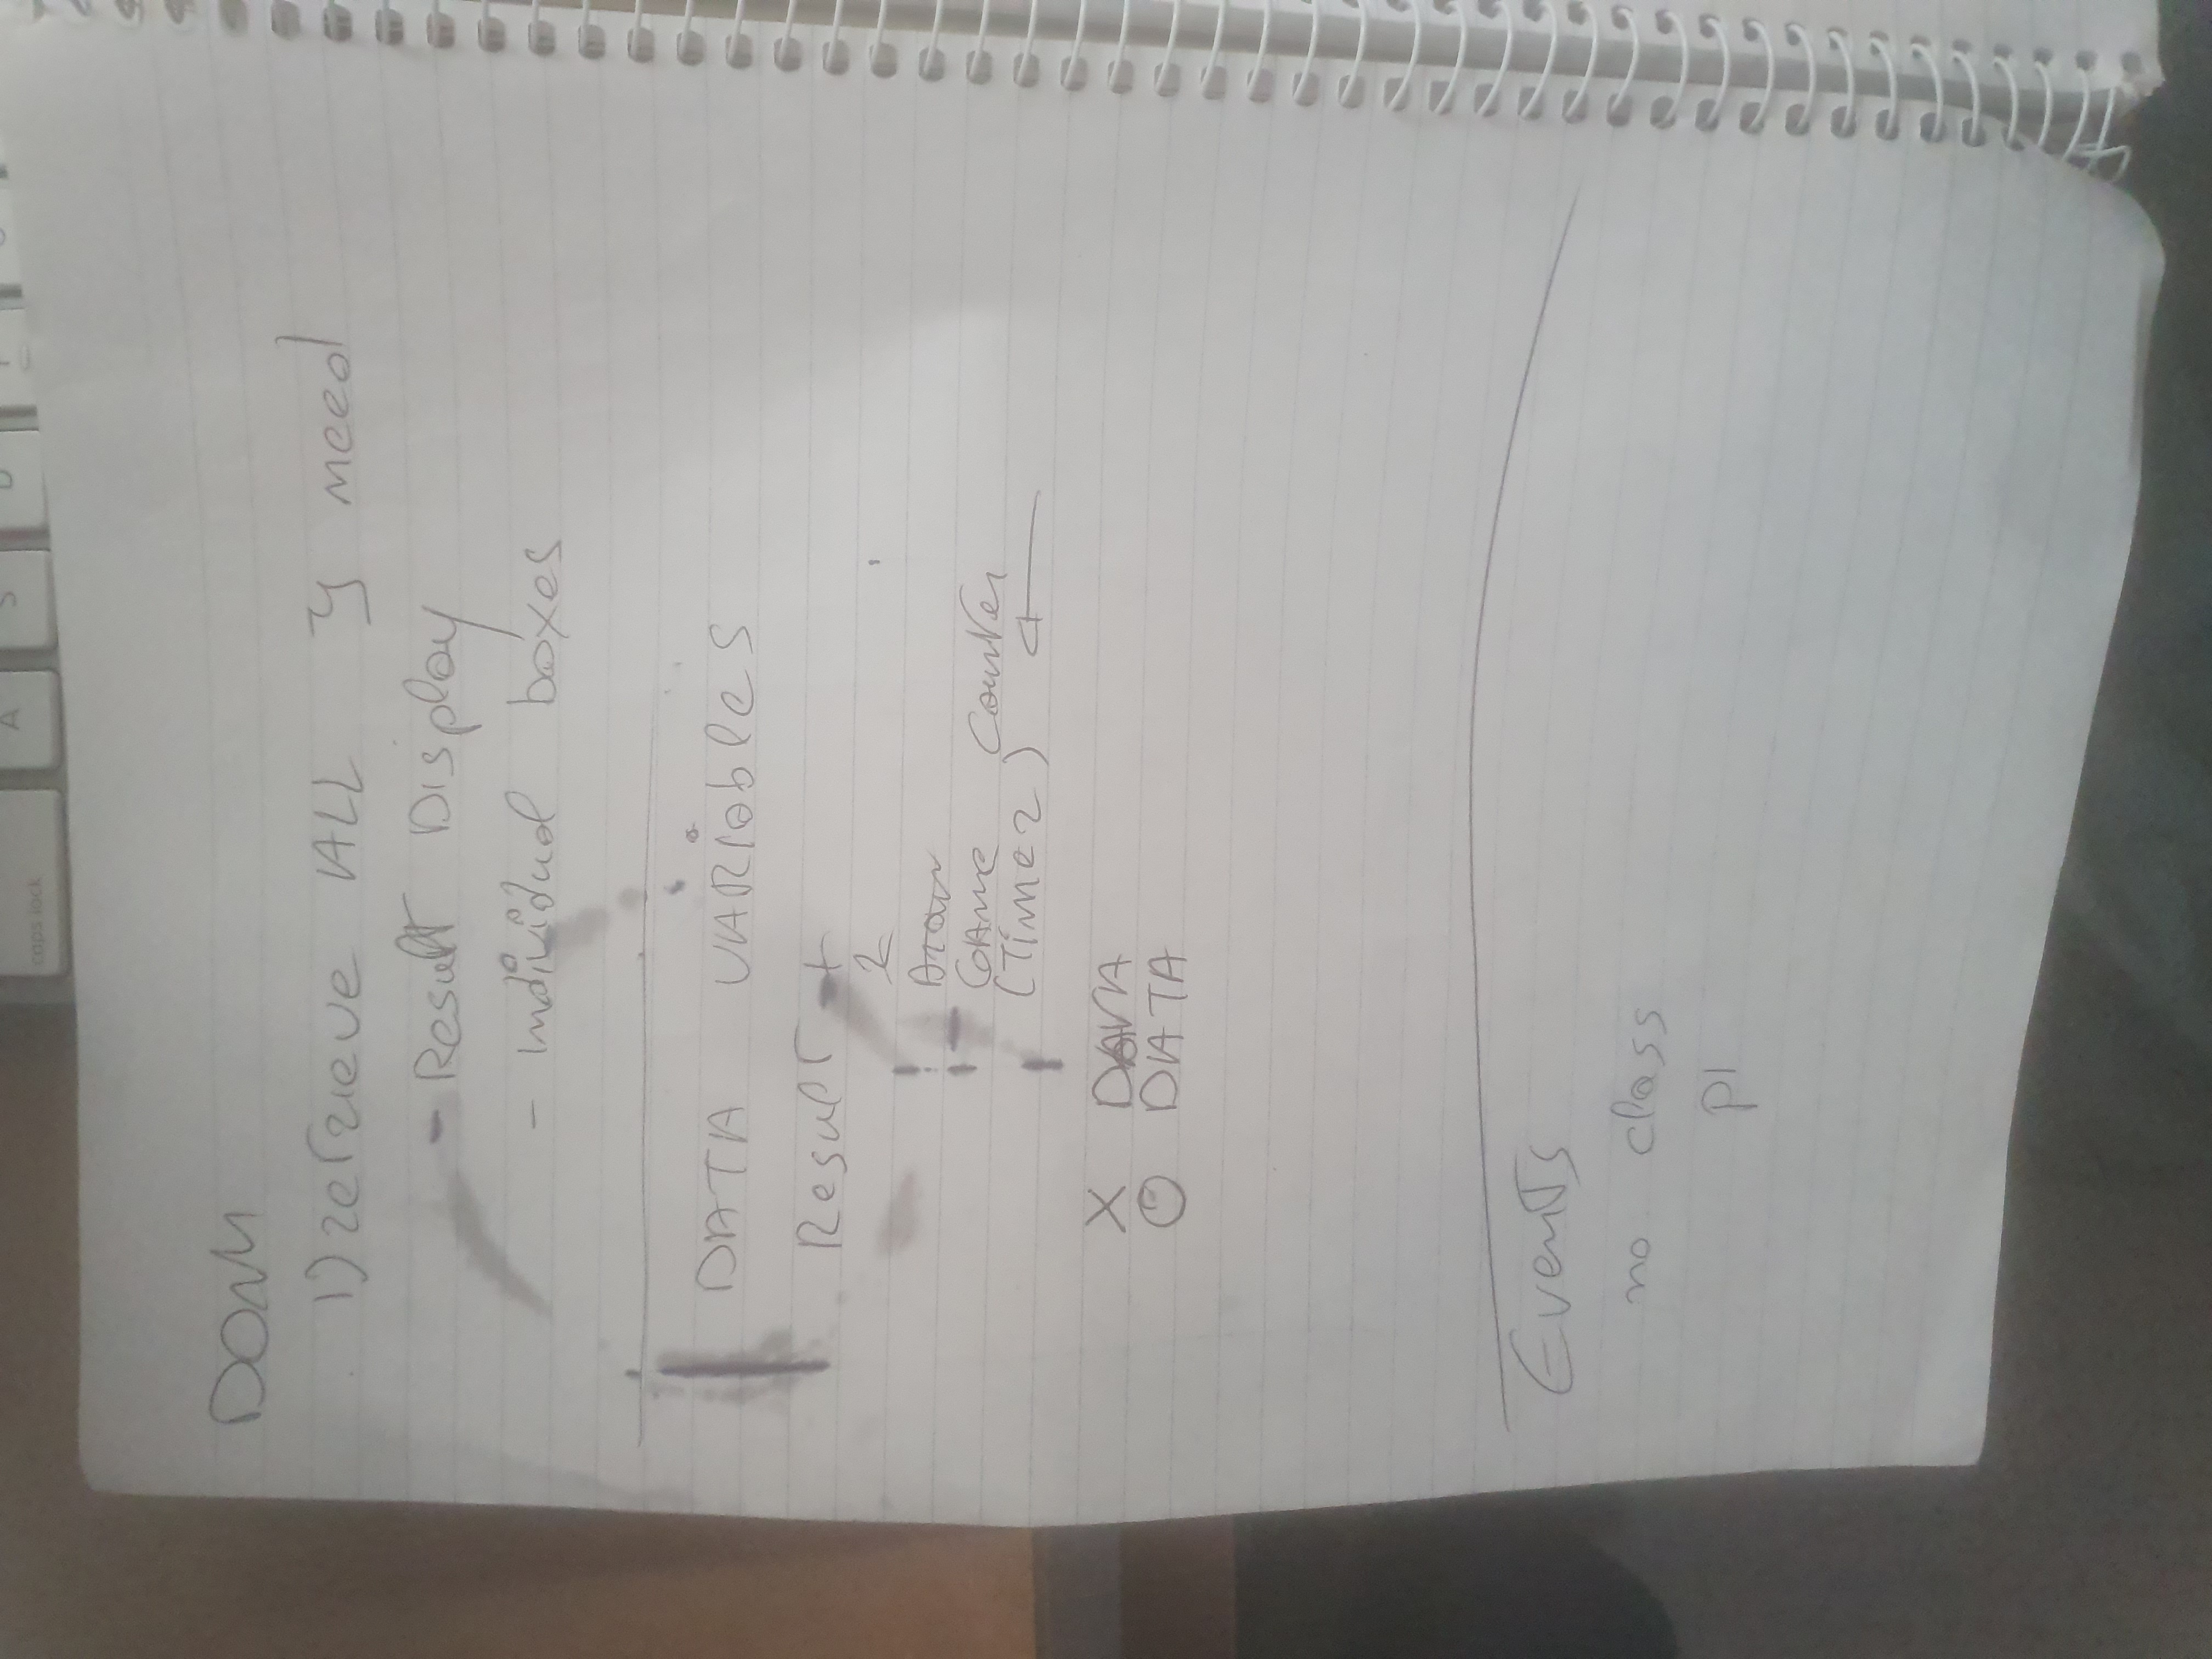 caps lock
A
S
D
DOM
1) retrieve ALL I need
- Result Display
- Individual boxes
DATA VARiables
Result - +
2
Draw
Game Counter
(Timer)
X DATA
O DATA
Events
no class
pl